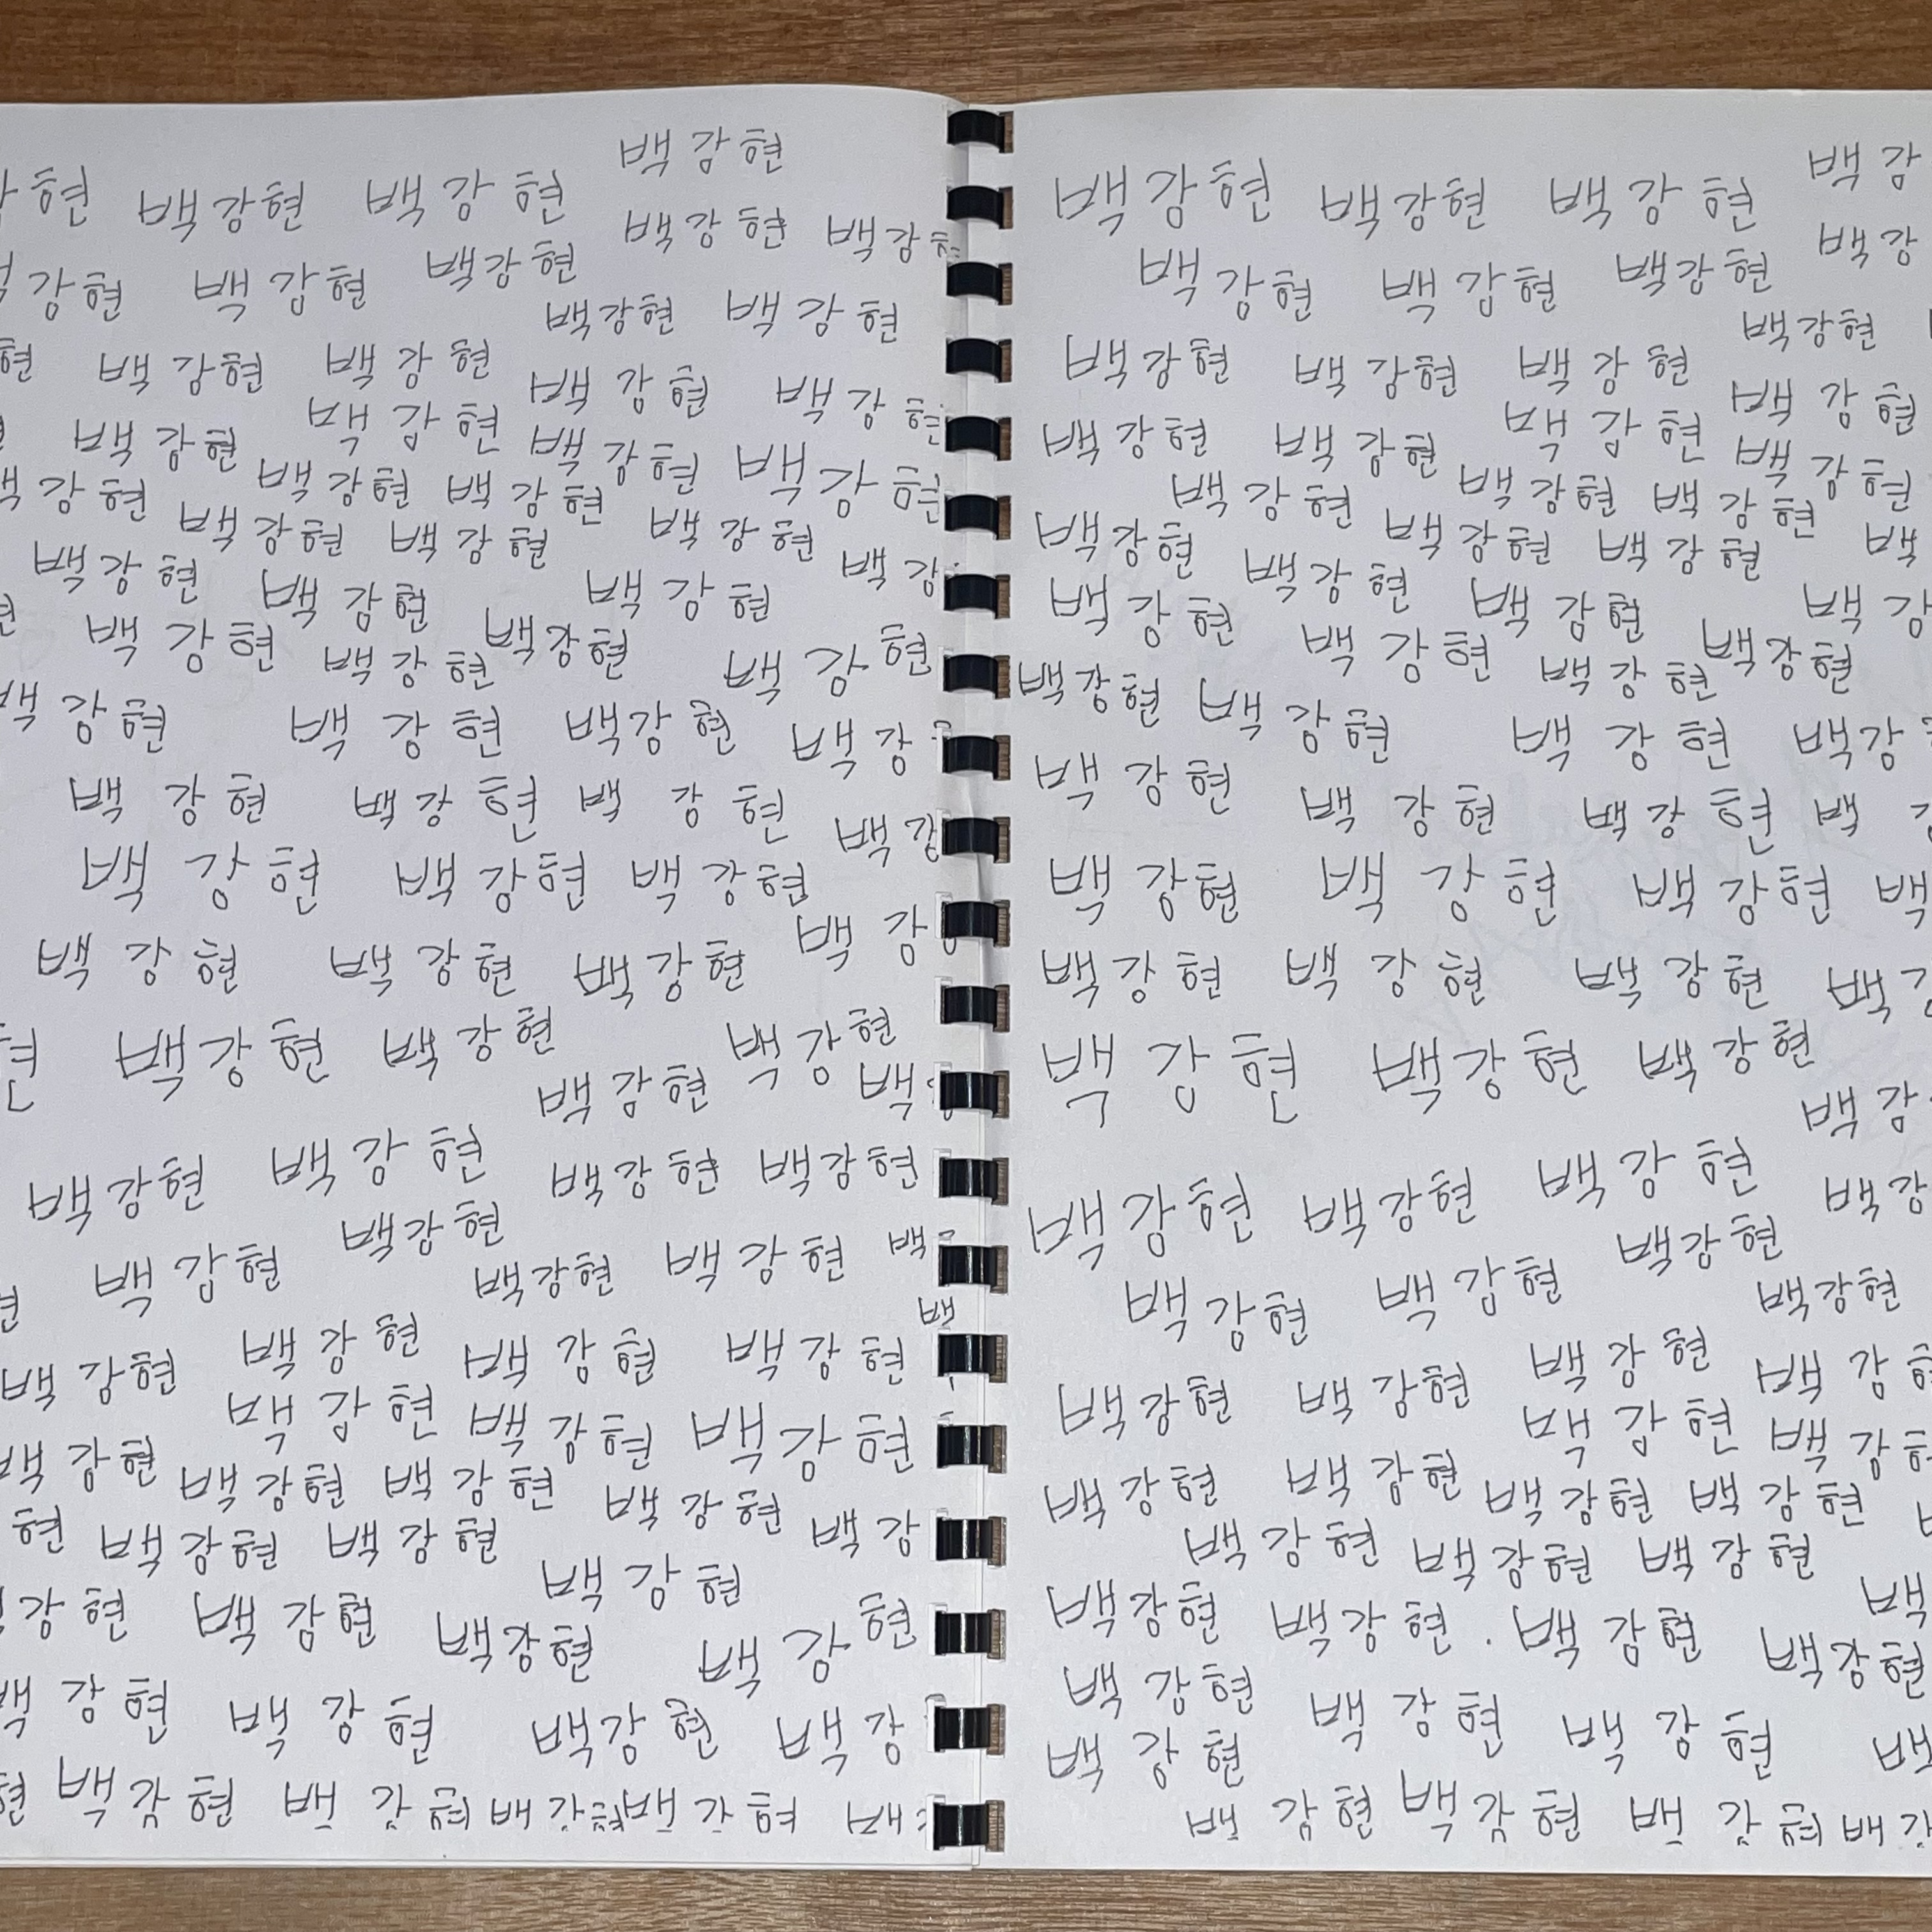 현 백강현 백강현 백강현
강현 백강현 백강현 백강현 백강
현 백강현 백강현 백강현 백강현
백강현 백강현 백강현 백강현
백강현 백강현 백강현 백강현
백강현 백강현 백강현 백강현
백강현 백강현 백강현 백강
현 백강현 백강현 백강현 백강현
백강현 백강현 백강현 백강
백강현 백강현 백강현 백강
백강현 백강현 백강현
백강현 백강현 백강현 백강
현 백강현 백강현 백강현
백강현 백
백강현 백강현 백강현 백강현
백강현 백강현 백강현 백강현 백
현 백
백강현 백강현 백강현 백강현
백강현 백강현 백강현 백강현
백강현 백강현 백강현
현 백강현 백강현 백강현 백강
강현 백강현 백강현 백강현
백강현 백강현 백강현 백강
현 백강현
백강현 백강현 백강현 백강
백강현 백강현 백강현 백강
백강현 백강현 백강현 백강현
백강현 백강현 백강현 백강현
백강현 백강현 백강현
백강현 백강현 백강현 백강현 백
백강현 백강현 백강현 백강
백강현 백강현 백강현 백강현
백강현 백강현 백강현 백강
백강현 백강현 백강현 백
백강현 백강현 백강현 백
백강현 백강현 백강현 백
백강현 백강현 백강현 백강
백강현 백강현 백강현 백강
백강현 백강현 백강현 백강현
백강현 백강현 백강현 백강
백강현 백강현 백강현 백강
백강현 백강현 백강현 백강현
백강현 백강현 백강현
백강현 백강현 백강현 백
백강현 백강현 백강현 백강현
백강현 백강현 백강현 백
백강현 백강현